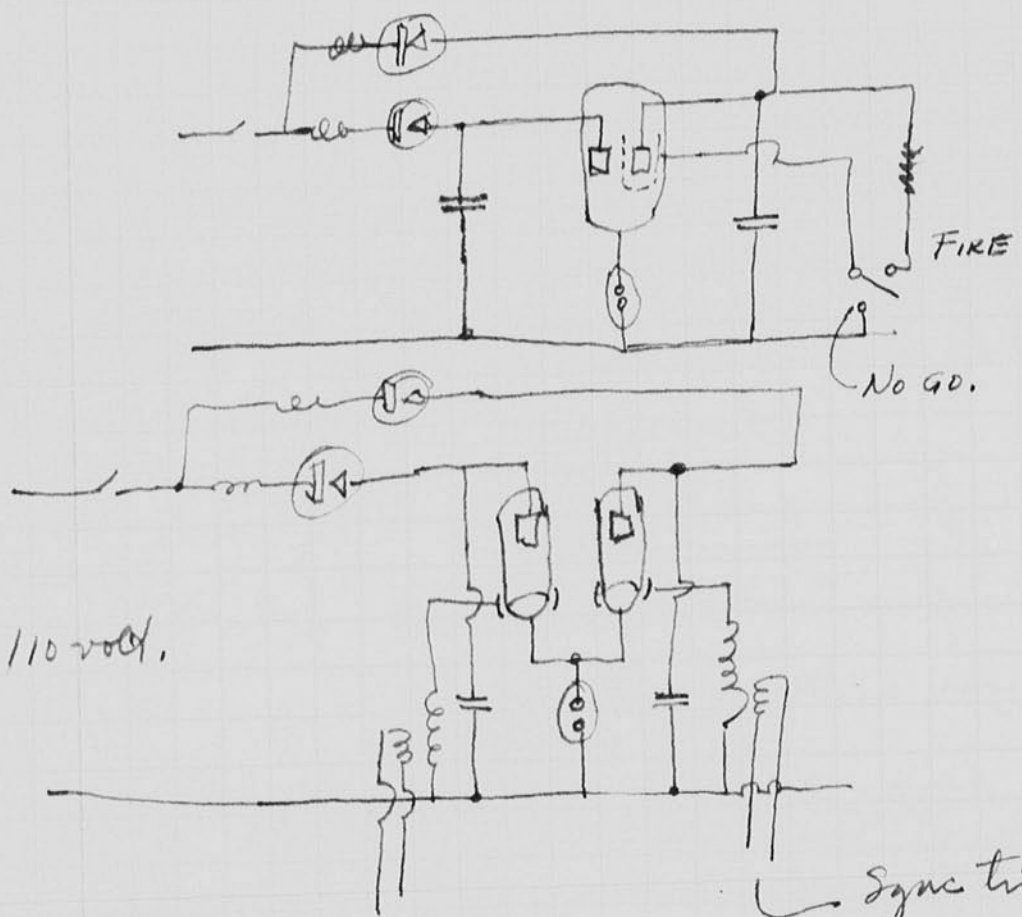 FIRE
NO GO.
110 volt.
Sync